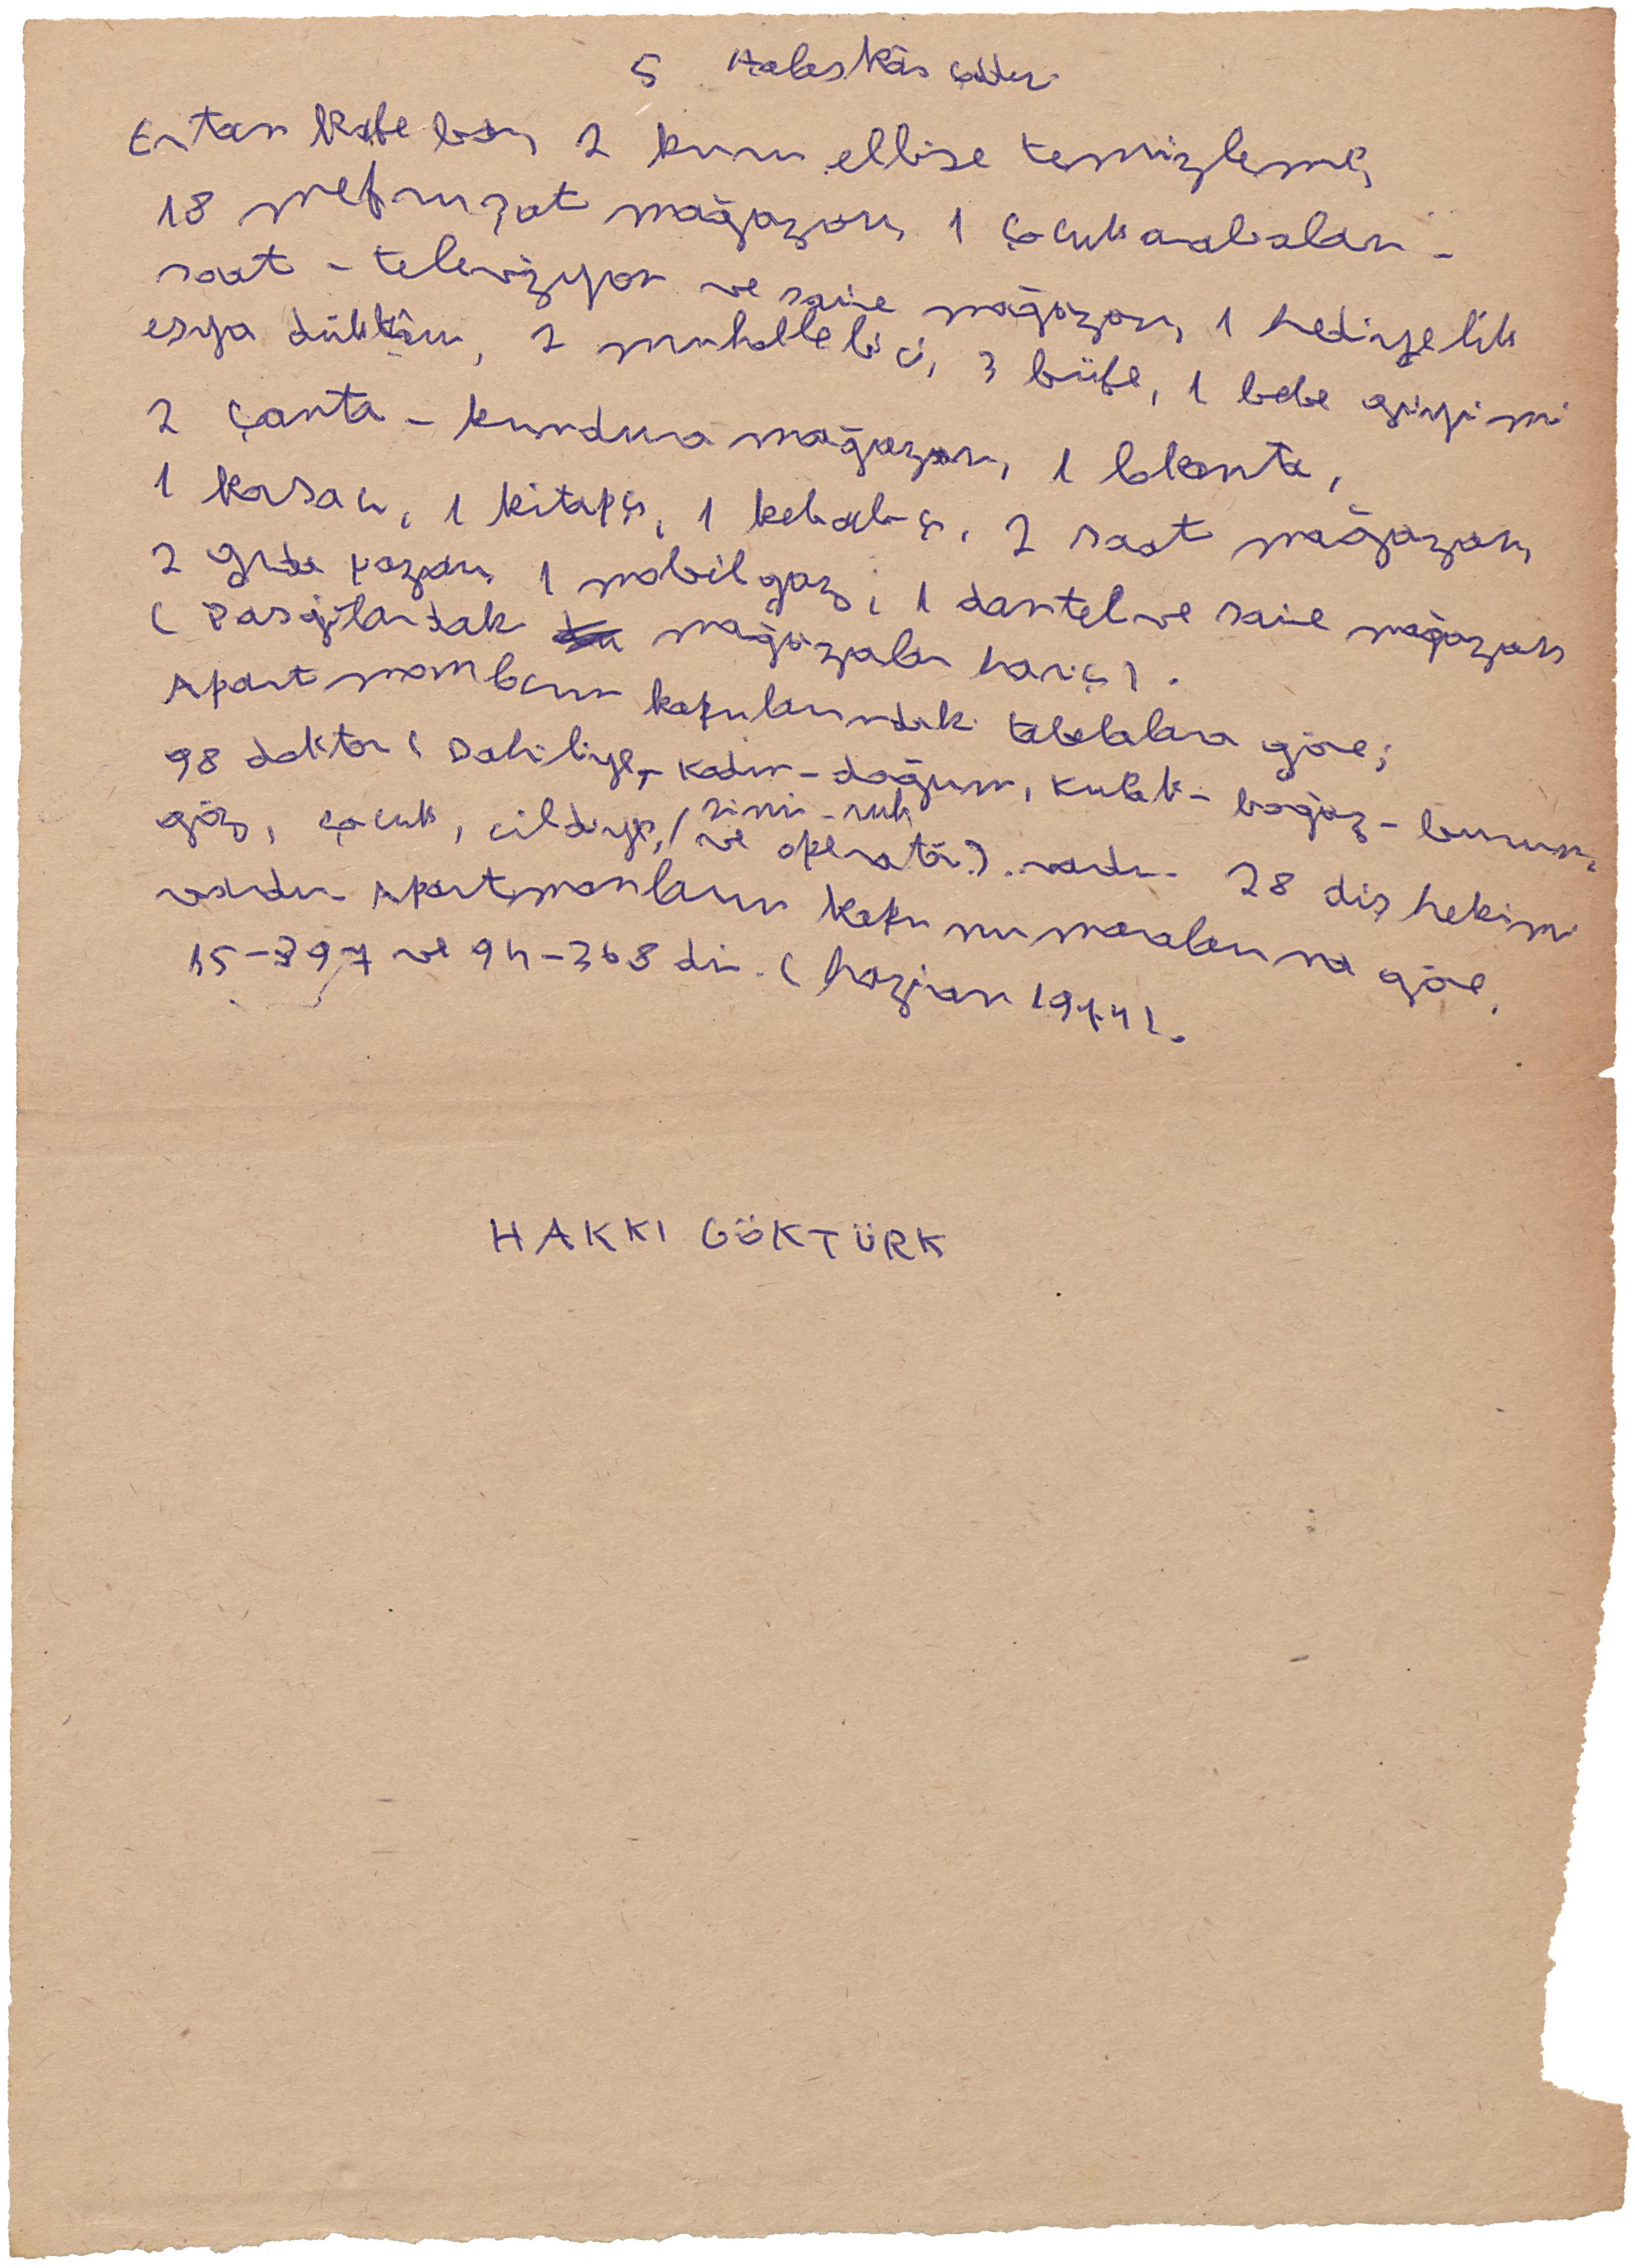 5 Halaskâr caddesi
Ertan Kafe barı, 2 kuru elbise temizleme,
18 mefruşat mağazası, 1 çocuk arabaları -
saat - televizyon ve saire mağazası, 1 hediyelik
eşya dükkânı, 2 muhallebici, 3 büfe, 1 bebe giyimi
2 çanta - kundura mağazası, 1 lokanta,
1 kasacı, 1 kitapçı, 1 kebabçı, 2 saat mağazası,
2 gıda pazarı, 1 mobilgaz, 1 dantel ve saire mağazası
(Pasajlardaki mağazalar hariç).
Apartmanların kapularındaki tabelalara göre;
98 doktor (Dahiliye, - kadın - doğum, kulak - boğaz - burun,
göz, çocuk, cildiye, / sinir - ruh ve operatör). vardır. 28 diş hekimi
vardır. Apartmanların kapu numaralarına göre,
15-397 ve 94-368 dir. (haziran 1974).
HAKKI GÖKTÜRK